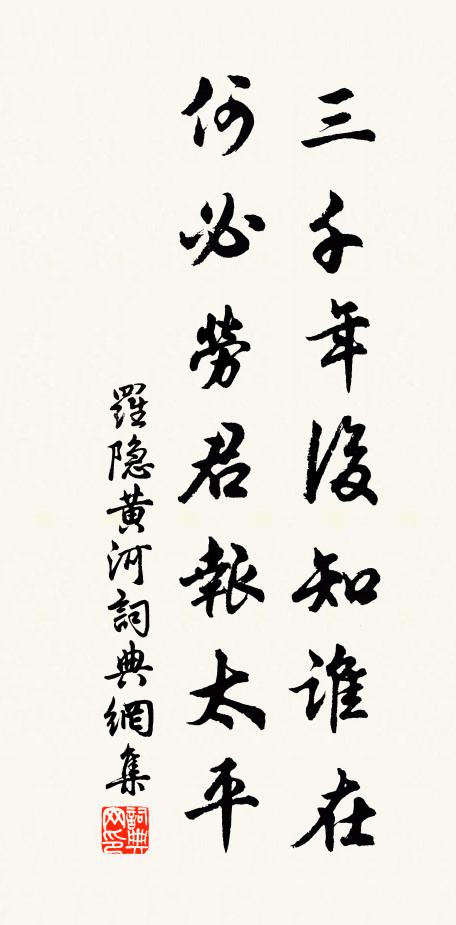 三千年後知誰在
何必勞君報太平
羅隐黄河詞典網集
詞典网印